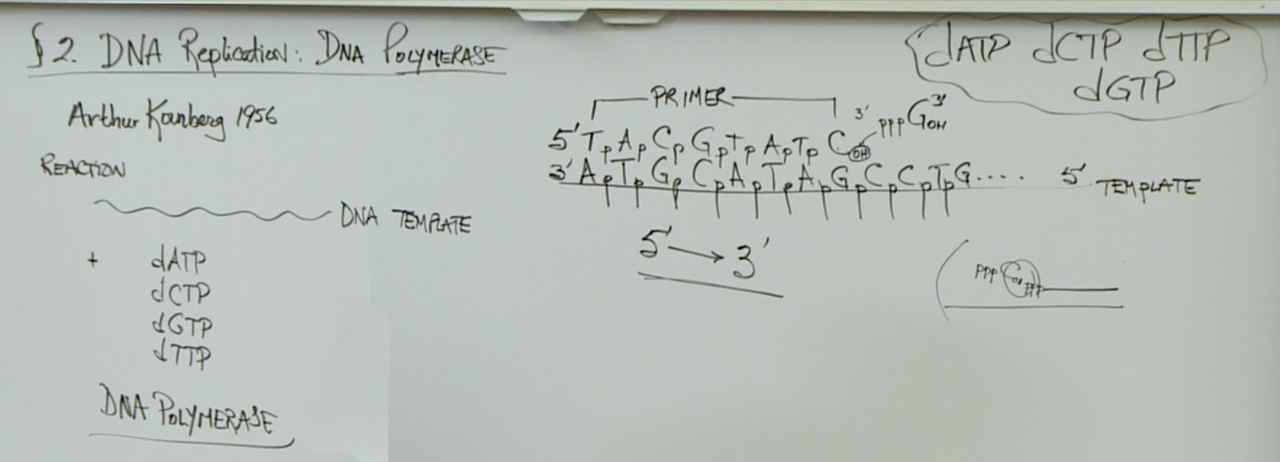 § 2. DNA Replication: DNA POLYMERASE
Arthur Kornberg 1956
REACTION
DNA TEMPLATE
+ dATP
dCTP
dGTP
dTTP
DNA POLYMERASE
PRIMER
5' TpApCpGpTpApTp C OH 3' pppG OH 3'
3' ApTpGpCpApTpApGpCpCpTpG.... 5' TEMPLATE
5' → 3'
dATP dCTP dTTP
dGTP
ppp
ppp